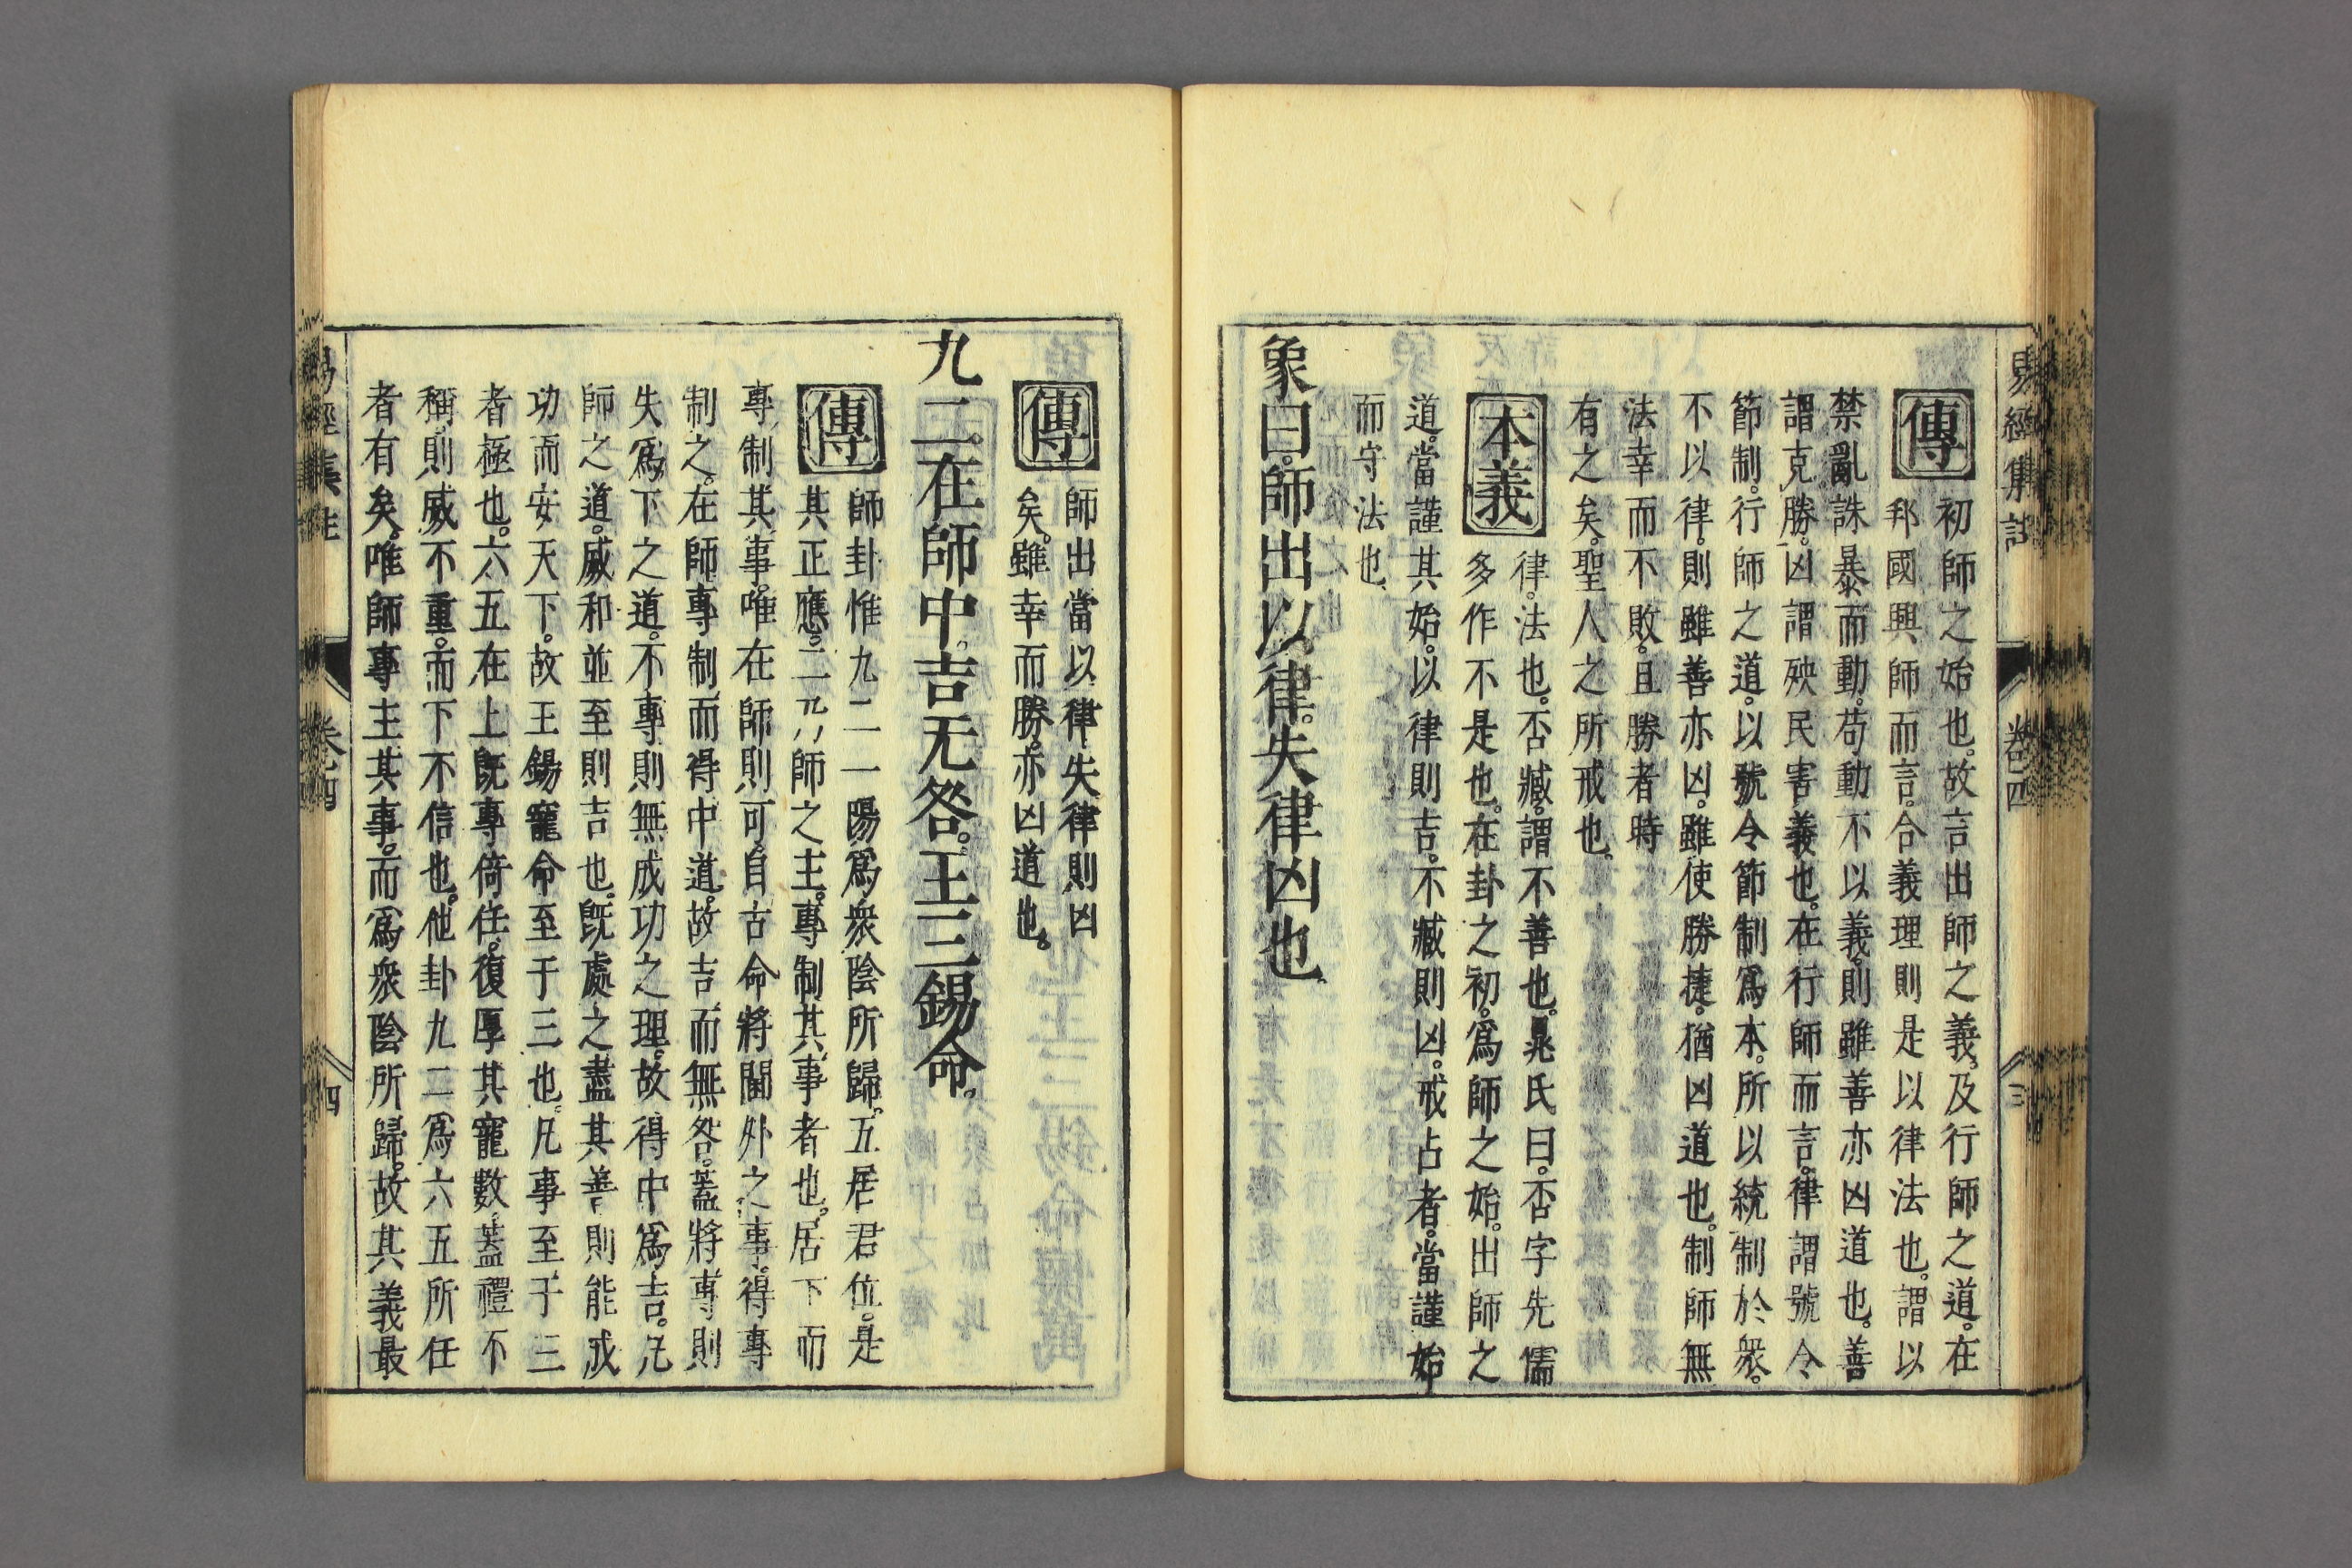 易經集註 卷四 三
傳 初師之始也。故言出師之義。及行師之道。在
邦國興師而言。合義理則是以律法也。謂以
禁亂誅暴而動。苟動不以義。則雖善亦凶道也。善
謂克勝。凶謂殃民害義也。在行師而言。律謂號令
節制。行師之道。以號令節制爲本。所以統制於衆。
不以律。則雖善亦凶。雖使勝捷。猶凶道也。制師無
法幸而不敗。且勝者時
有之矣。聖人之所戒也。
本義 律。法也。否臧。謂不善也。晁氏曰。否字先儒
多作不是也。在卦之初。爲師之始。出師之
道。當謹其始。以律則吉。不臧則凶。戒占者。當謹始
而守法也。
象曰。師出以律。失律凶也。
傳 師出當以律失律則凶
矣。雖幸而勝。亦凶道也。
九二在師中。吉无咎。王三錫命。
傳 師卦惟九二一陽爲衆陰所歸。五居君位。是
其正應。二乃師之主。專制其事者也。居下而
專制其事。唯在師則可。自古命將閫外之事。得專
制之。在師專制而得中道。故吉而無咎。蓋將專則
失爲下之道。不專則無成功之理。故得中爲吉。凡
師之道。威和並至則吉也。旣處之盡其善則能成
功而安天下。故王錫寵命至于三也。凡事至于三
者極也。六五在上旣專倚任。復厚其寵數。蓋禮不
稱。則威不重。而下不信也。他卦九二爲六五所任
者有矣。唯師專主其事。而爲衆陰所歸。故其義最
易經集註 卷四 四